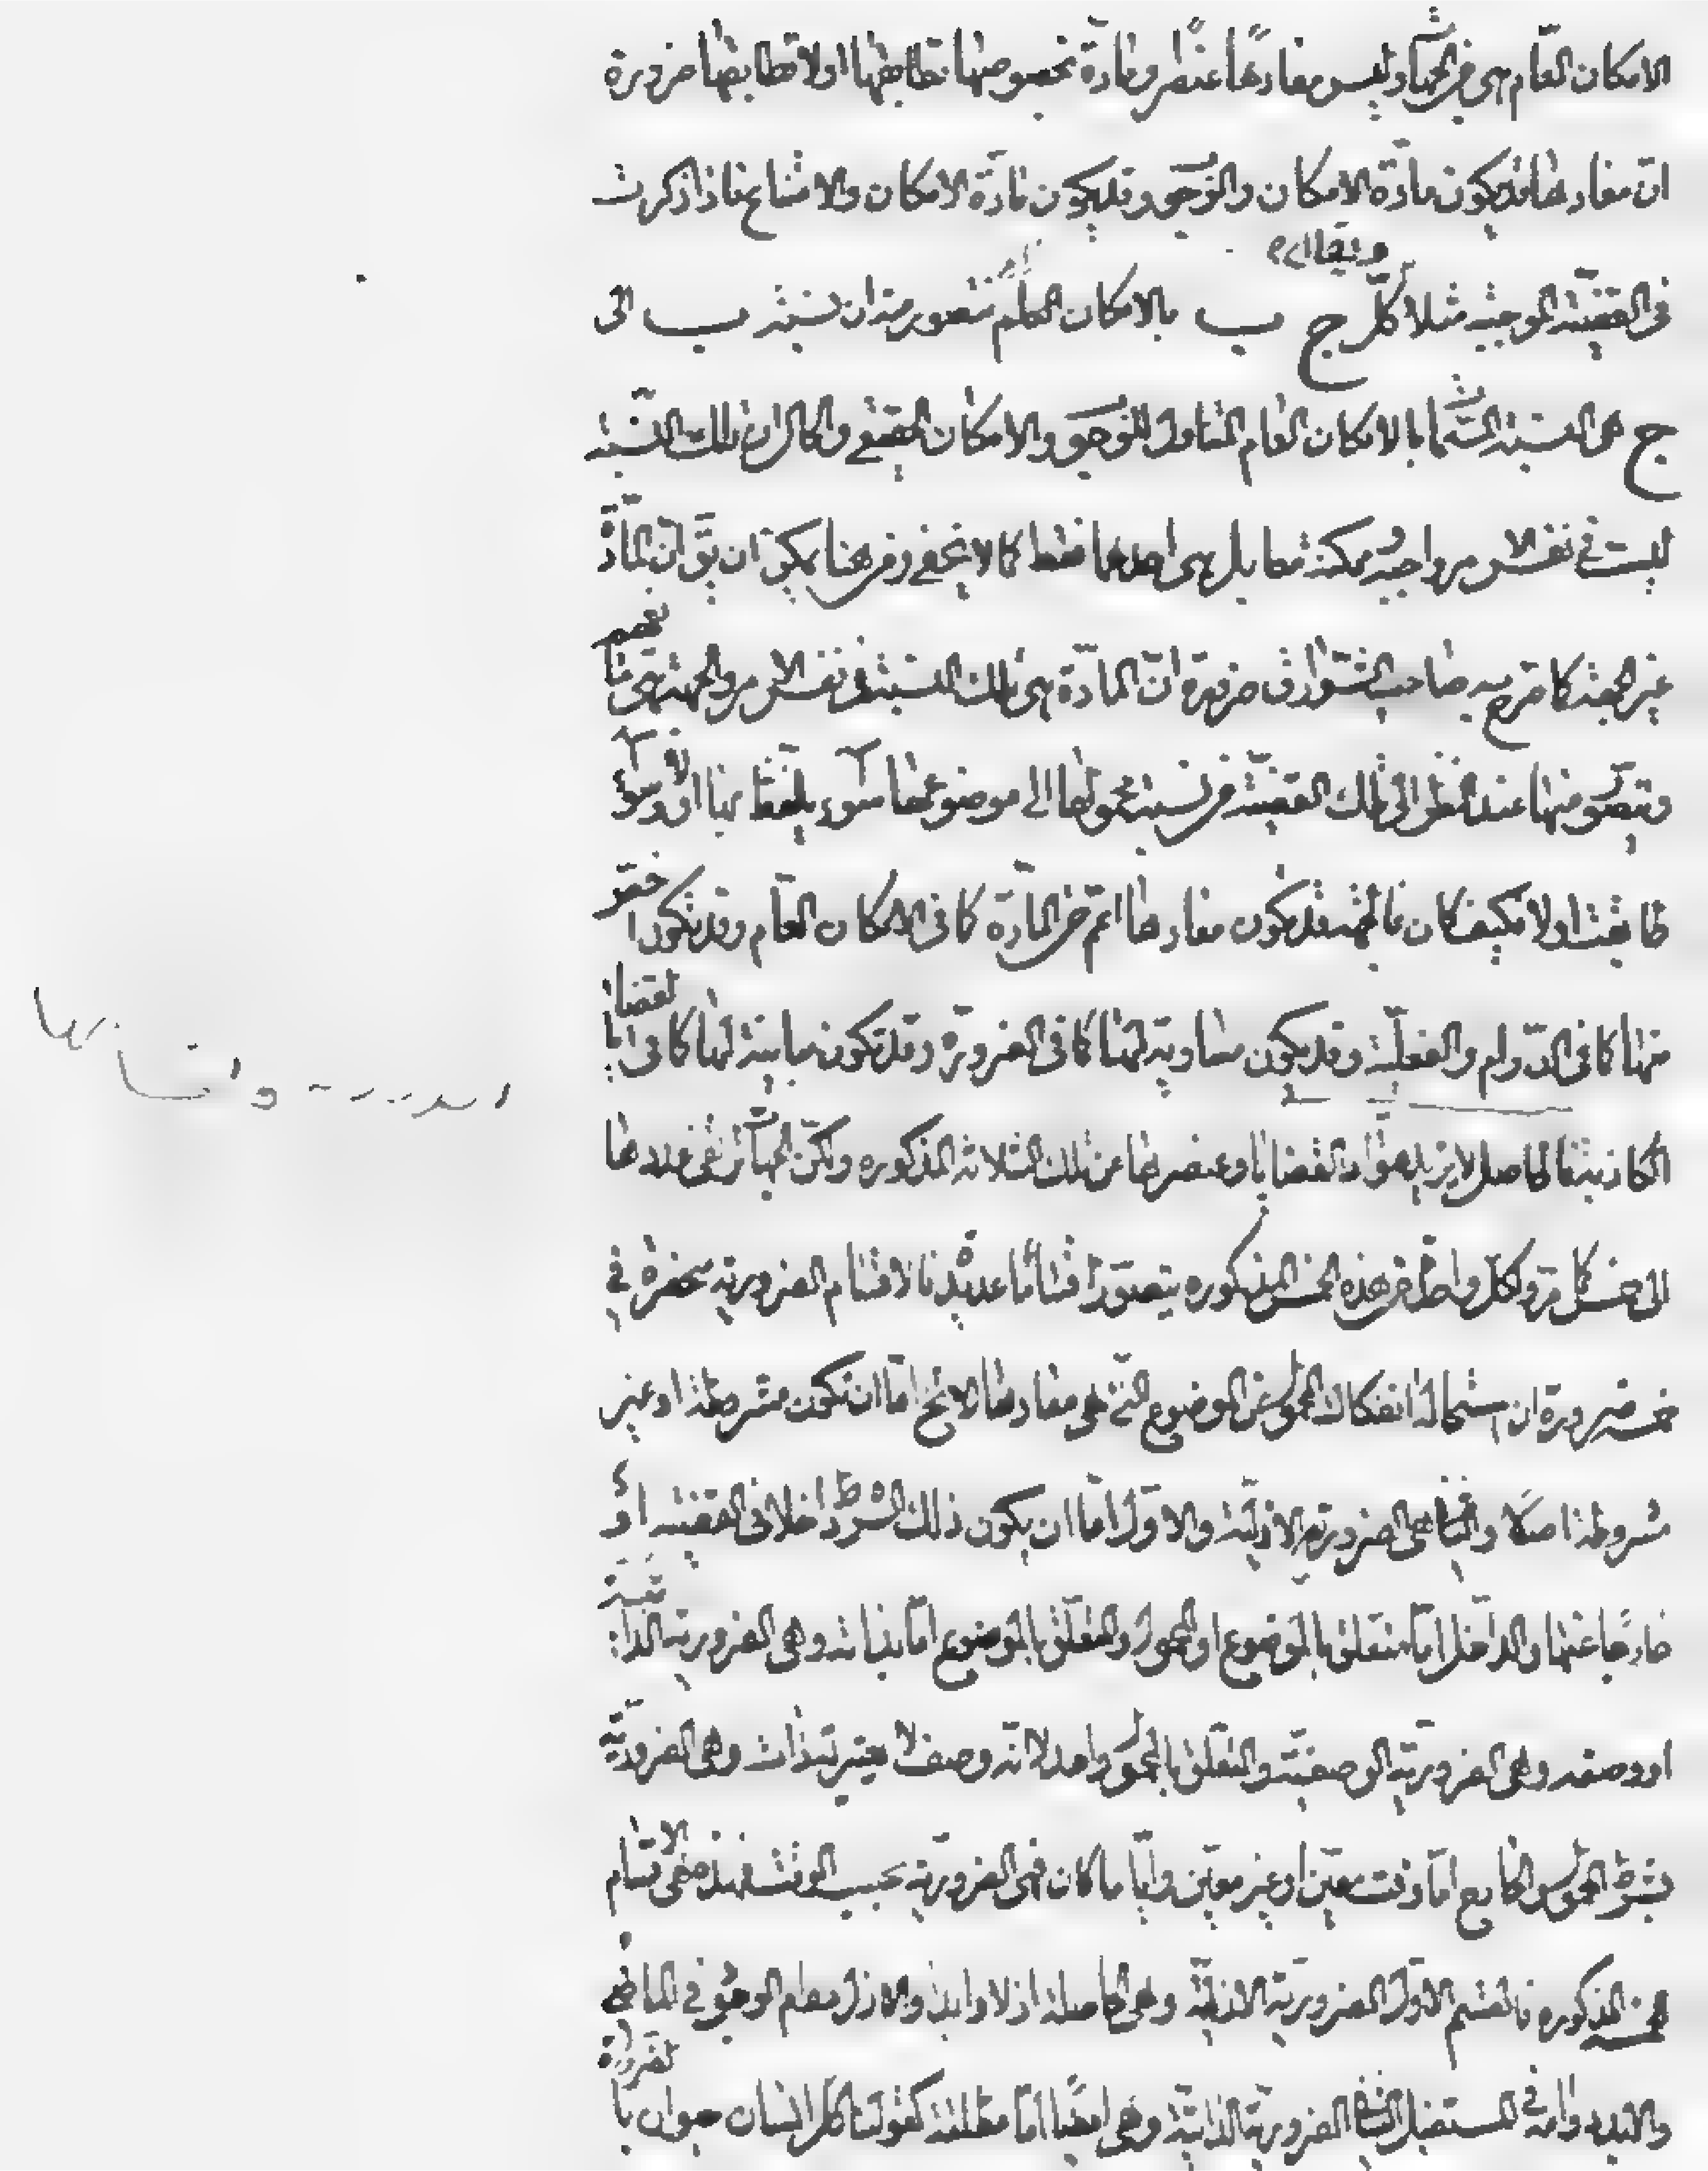 الامكان العام هى من الجهات وليس مفادها عنصر ومادة بخصوصها تطابقها او لا تطابقها ضرورة
ان مفادها قد يكون مادة الامكان والوجوب وقد يكون مادة الامكان والامتناع فاذا ذكرت
فى القضية الموجبة مثلا كل ج ب بالامكان العام يتصور منه ان نسبة ب الى
ج هى النسبة المسماة بالامكان العام المتناول للوجوب والامكان الحقيقى والحال ان تلك النسبة
ليست فى نفس الامر واجبة وممكنة معا بل هى احدهما فقط كما لا يخفى ومن هنا يمكن ان يق ان المادة
غير الجهة كما صرح به صاحب الشوارق ضرورة ان المادة هى تلك النسبة فى نفس الامر والجهة هى ما يفهم
ويتصور منها عند النظر الى تلك القضية من نسبة محمولها الى موضوعها سواء يلفظ بها او لا وسواء
طابقت او لا فكيف كان فالجهة قد يكون مفادها اعم من المادة كما فى الامكان العام وقد تكون اخص
منها كما فى الدوام والفعلية وقد يكون مساوية لها كما فى الضرورة وقد تكون مباينة لها كما فى القضايا
الكاذبة فالحاصل لا يزيد مواد القضايا وعنصرها عن تلك الثلاثة المذكوره ولكن الجهات يرتقى عددها
الى خمس كما مر ولكل واحد من هذه الخمس المذكوره يتصور اقساما عديدة فالاقسام الضرورية منحصرة فى
خمسة ضرورة ان استحالة انفكاك المحمول عن الموضوع التى هى مفادها لا يخ اما ان تكون مشروطة او غير
مشروطة اصلا والثانى هى الضرورية الازلية والاول اما ان يكون ذلك الشرط داخلا فى القضية او
خارجا عنها والداخل اما متعلق بالموضوع او المحمول والمتعلق بالموضوع اما بذاته وهى الضرورية الذاتية
او وصفه وهى الضرورية الوصفية والمتعلق بالمحمول واحد لانه وصف لا يعتبر بذات وهى الضرورية
بشرط المحمول والخارج اما وقت معين او غير معين وايا ما كان فهى الضرورية بحسب الوقت فهذه هى الاقسام
الخمسة المذكوره فالقسم الاول الضرورية الازلية وهى الحاصلة ازلا وابدا والازل دوام الوجود فى الماضى
والابد دوامه فى المستقبل الثانى الضرورية الذاتية وهى ايضا اما مطلقة كقولنا كل انسان حيوان بالضرورة